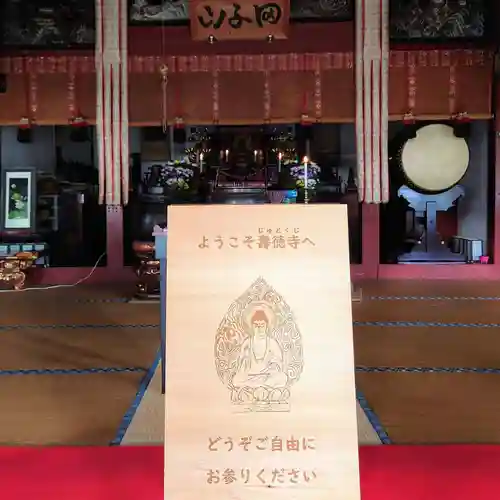 山子固
じゅとくじ
ようこそ壽徳寺へ
どうぞご自由に
お参りください